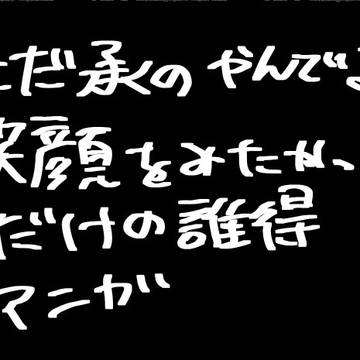 ただ承のやんでる
笑顔をみたかっ
だけの誰得
マンガ